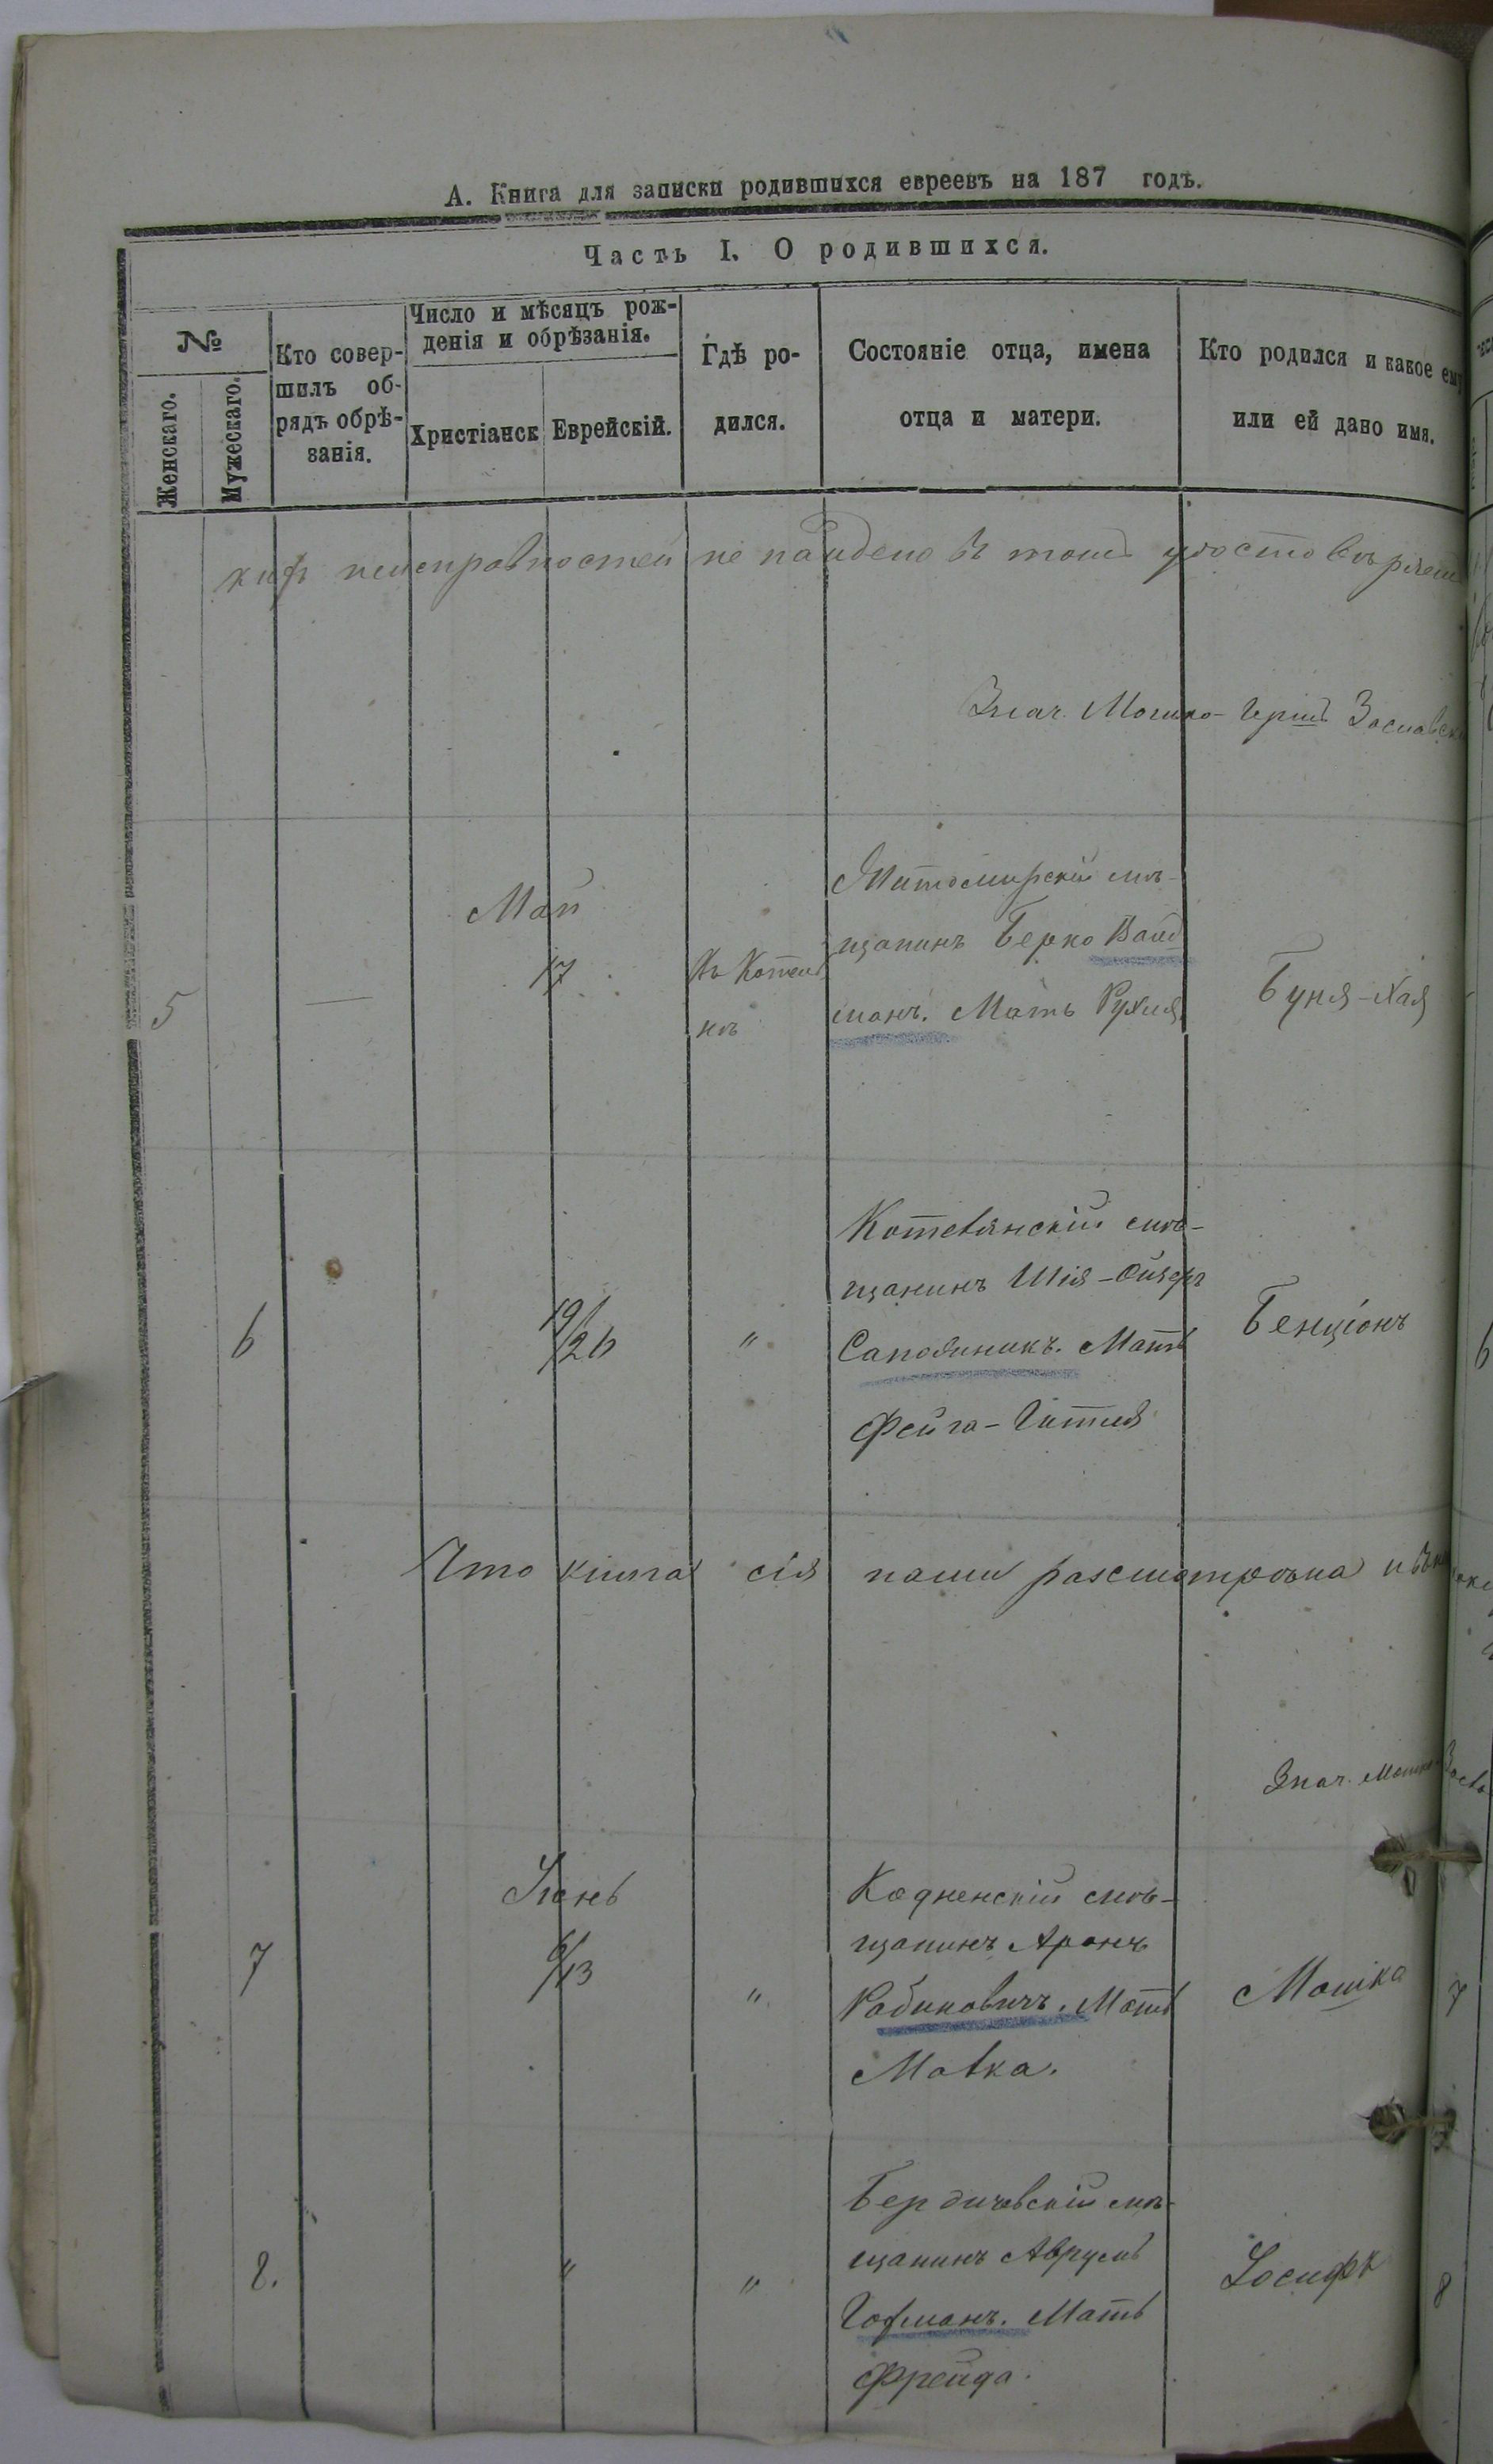 А. Книга для записки родившихся евреевъ на 187 годъ.
Часть I. О родившихся.
№
Женскаго.
Мужескаго.
Кто совер-
шилъ об-
рядъ обрѣ-
занія.
Число и мѣсяцъ рож-
денія и обрѣзанія.
Христіанск
Еврейскій.
Гдѣ ро-
дился.
Состояніе отца, имена
отца и матери.
Кто родился и какое ему
или ей дано имя.
неисправностей не найдено въ томъ удостовѣряемъ
Май
5
—
17
Въ Котель
нѣ
Житомирскій мѣ-
щанинъ Берко Вайд
манъ. Мать Рухля.
Буня-Хая
6
19/26
"
мѣ-
щанинъ Шія-Ойзеръ
Сапожникъ. Мать
Фейга-Гитля
Бенціонъ
Что книга сія нами разсмотрѣна и
Знач. Мошко
Іюнь
7
6/13
"
Кодненскій мѣ-
щанинъ Аронъ
Рабиновичъ. Мать
Малка.
Мошка
7
8.
"
"
Бердичевскій мѣ-
щанинъ Аврумъ
Гофманъ. Мать
Фрейда.
Іосифъ
8